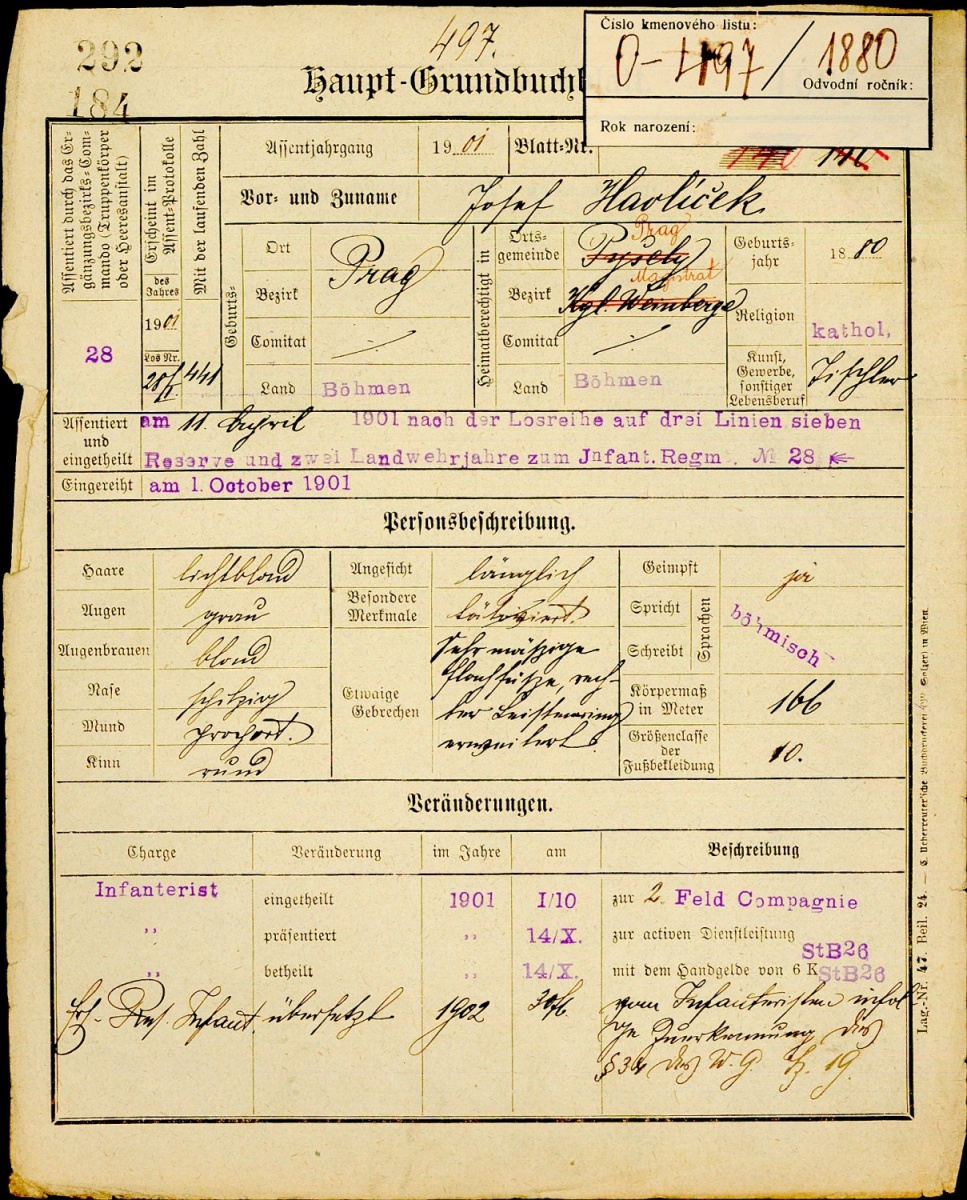 292
184
497.
Haupt-Grundbuchb
Číslo kmenového listu:
0-497/1880
Odvodní ročník:
Rok narození:
Assentiert durch das Er-
gänzungsbezirks-Com-
mando (Truppenkörper
oder Heeresanstalt)
28
Erscheint im
Assent-Protokolle
des
Jahres
1901
Los Nr.
Mit der laufenden Zahl
441
Assentjahrgang
1901
Blatt-Nr.
140 140
Vor- und Zuname
Josef Havlíček
Geburts-
Ort
Bezirk
Prag
Comitat
Land
Böhmen
Heimatberechtigt in
Orts-
gemeinde
Prag
Pyšely
Bezirk
Magistrat
Kgl. Weinberge
Comitat
Land
Böhmen
Geburts-
jahr
1880
Religion
kathol.
Kunst,
Gewerbe,
sonstiger
Lebensberuf
Tischler
Assentiert
und
eingetheilt
am 11 April 1901 nach der Losreihe auf drei Linien sieben
Reserve und zwei Landwehrjahre zum Jnfant. Regm. № 28
Eingereiht
am 1. October 1901
Personsbeschreibung.
Haare
lichtblond
Augen
grau
Augenbrauen
blond
Nase
spitzig
Mund
proport.
Kinn
rund
Angesicht
länglich
Besondere
Merkmale
tätoviert.
Etwaige
Gebrechen
Sehr mäßige
Plachfüsse, rech-
ter Leistenring
erweitert.
Geimpft
ja
Spricht
Schreibt
Sprachen
böhmisch
Körpermaß
in Meter
166
Größenclasse
der
Fußbekleidung
10.
Veränderungen.
Charge Veränderung im Jahre am Beschreibung
Infanterist eingetheilt 1901 1/10 zur 2. Feld Compagnie
,, präsentiert ,, 14/X. zur activen Dienstleistung StB26
,, betheilt ,, 14/X. mit dem Handgelde von 6 K StB26
Ers. Res. Infant. übersetzt 1902 30/6. vom Infanteristen infol
ge Zuerkennung des
§34 des W. G. 
Lag.-Nr. 47. Beil. 24. — C. Ueberreuter'sche Buchdruckerei (M. Salzer) in Wien.